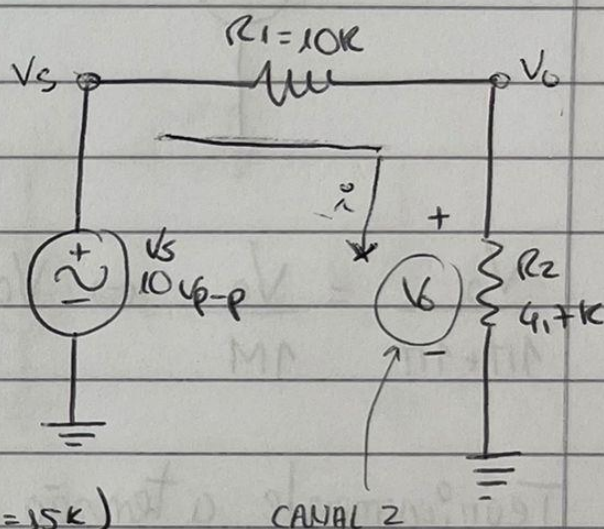 R1=10K
Vs
Vo
i
+
+
Vs
10 Vp-p
-
Vo
R2
4,7K
-
=15K)
CANAL 2